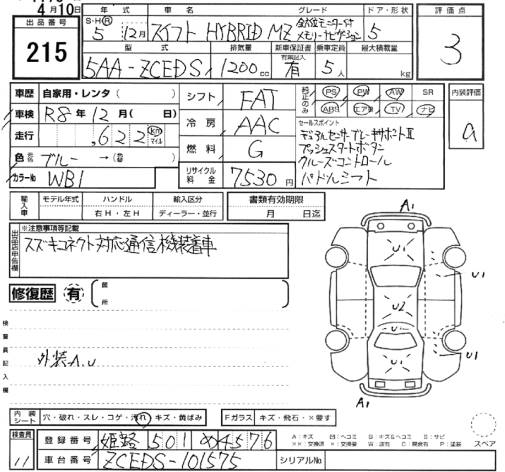 4月10日
出品番号
215
年式 車名 グレード ドア・形状
S・H・R 5年 12月 スイフト HYBRID MZ 全方位モニター付メモリーナビゲーション 5
型式 排気量 新車保証書 有無記入 乗車定員 最大積載量
5AA-ZCEDS 1200cc 有 5人 kg
評価点
3
車歴 自家用・レンタ( )
車検 R8年12月( 日)
走行 ,622 km マイル
色 ブルー→(替)
カラーNo WB1
シフト FAT
冷房 AAC
燃料 G
リサイクル料金 7530円
純正のみ PS PW AW SR
ABS エアB TV ナビ
セールスポイント
デュアルセンサーブレーキサポートⅡ
プッシュスタートボタン
クルーズコントロール
パドルシフト
内装評価
a
輸入車 モデル年式 ハンドル 輸入区分
右H・左H ディーラー・並行
書類有効期限
月 日迄
※注意事項等記載
スズキコネクト対応通信機装着車
修復歴 有 箇所
検査員記入欄
外装A.U
A1
U1
U1
U2
U1
U1
A1
内装シート 穴・破れ・スレ・コゲ・汚れ・キズ・黄ばみ
Fガラス キズ・飛石・×要す
スペア
検査員 11
登録番号 姫路 501 4576
車台番号 ZCEDS-101575
シリアルNo